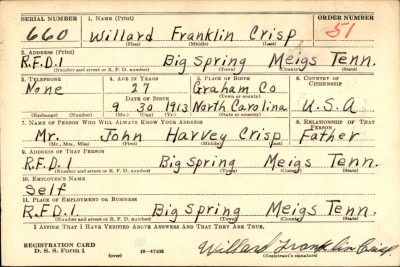 SERIAL NUMBER 1. NAME (Print) ORDER NUMBER
660 Willard Franklin Crisp 51
(First) (Middle) (Last)
2. ADDRESS (Print)
R.F.D.1 Big Spring Meigs Tenn.
(Number and street or R. F. D. number) (Town) (County) (State)
3. TELEPHONE 4. AGE IN YEARS 5. PLACE OF BIRTH 6. COUNTRY OF CITIZENSHIP
None 27 Graham Co
DATE OF BIRTH (Town or county)
9 30 1913 North Carolina U.S.A
(Exchange) (Number) (Mo.) (Day) (Yr.) (State or country)
7. NAME OF PERSON WHO WILL ALWAYS KNOW YOUR ADDRESS 8. RELATIONSHIP OF THAT PERSON
Mr. John Harvey Crisp Father
(Mr., Mrs., Miss) (First) (Middle) (Last)
9. ADDRESS OF THAT PERSON
R.F.D.1 Big Spring Meigs Tenn.
(Number and street or R. F. D. number) (Town) (County) (State)
10. EMPLOYER'S NAME
Self
11. PLACE OF EMPLOYMENT OR BUSINESS
R.F.D.1 Big Spring Meigs Tenn.
(Number and street or R. F. D. number) (Town) (County) (State)
I AFFIRM THAT I HAVE VERIFIED ABOVE ANSWERS AND THAT THEY ARE TRUE.
REGISTRATION CARD
D. S. S. Form 1 (over) 16—17105 Willard Franklin Crisp
(Registrant's signature)